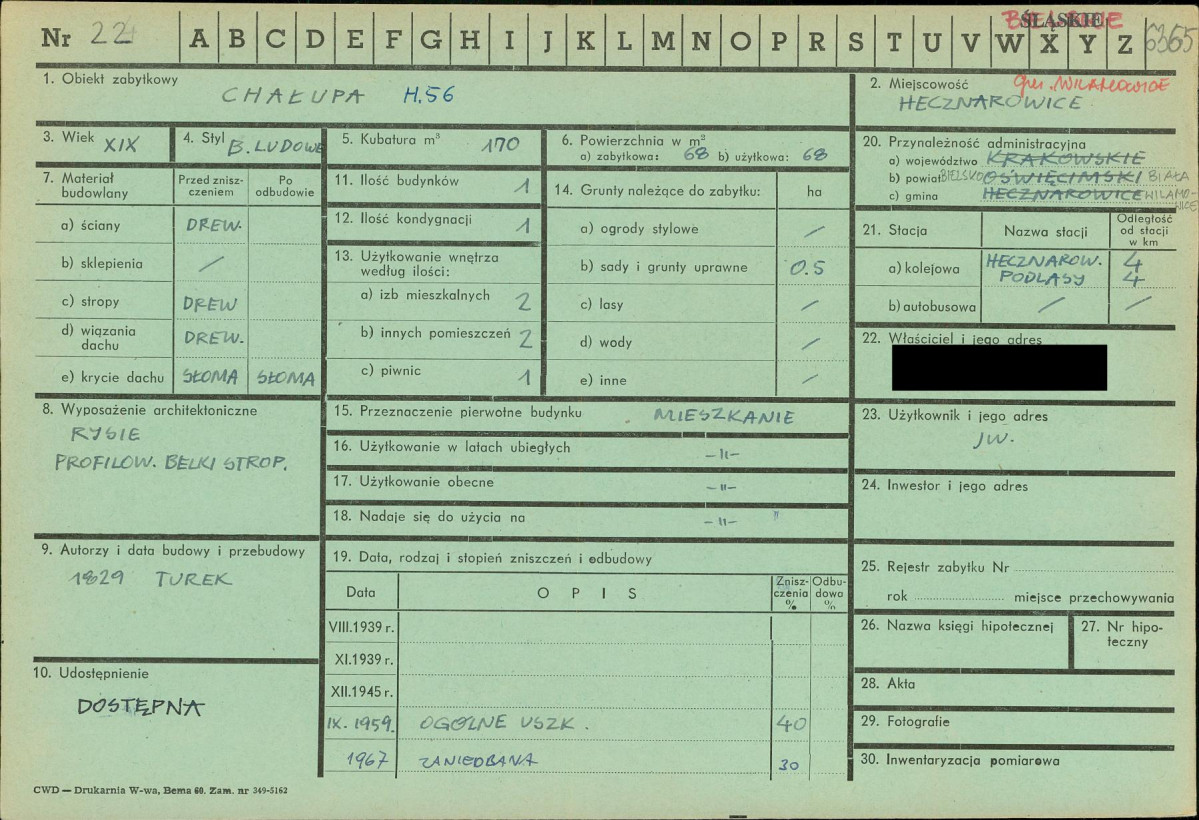 Nr 22 A B C D E F G H I J K L M N O P R S T U V W X Y Z 6365
BIELSKIE ŚLĄSKIE
1. Obiekt zabytkowy
CHAŁUPA H.56
2. Miejscowość gm. WILAMOWICE
HECZNAROWICE
3. Wiek XIX
4. Styl B. LUDOWE
5. Kubatura m³ 170
6. Powierzchnia w m²
a) zabytkowa: 68 b) użytkowa: 68
20. Przynależność administracyjna
a) województwo KRAKOWSKIE
b) powiat BIELSKO OŚWIĘCIMSKI BIAŁA
c) gmina HECZNAROWICE WILAMOWICE
7. Materiał budowlany
Przed zniszczeniem
Po odbudowie
a) ściany DREW.
b) sklepienia /
c) stropy DREW
d) wiązania dachu DREW.
e) krycie dachu SŁOMA SŁOMA
11. Ilość budynków 1
12. Ilość kondygnacji 1
13. Użytkowanie wnętrza według ilości:
a) izb mieszkalnych 2
b) innych pomieszczeń 2
c) piwnic 1
14. Grunty należące do zabytku: ha
a) ogrody stylowe /
b) sady i grunty uprawne 0.5
c) lasy /
d) wody /
e) inne /
21. Stacja Nazwa stacji Odległość od stacji w km
a) kolejowa HECZNAROW. 4
PODLASY 4
b) autobusowa / /
22. Właściciel i jego adres
8. Wyposażenie architektoniczne
RYSIE
PROFILOW. BELKI STROP.
15. Przeznaczenie pierwotne budynku MIESZKANIE
16. Użytkowanie w latach ubiegłych –II–
17. Użytkowanie obecne –II–
18. Nadaje się do użycia na –II– "
23. Użytkownik i jego adres
JW.
24. Inwestor i jego adres
9. Autorzy i data budowy i przebudowy
1829 TUREK
19. Data, rodzaj i stopień zniszczeń i odbudowy
Data OPIS Zniszczenia % Odbudowa %
VIII.1939 r.
XI.1939 r.
XII.1945 r.
IX. 1959. OGÓLNE USZK. 40
1967 ZANIEDBANA 30
25. Rejestr zabytku Nr
rok miejsce przechowywania
26. Nazwa księgi hipotecznej
27. Nr hipoteczny
10. Udostępnienie
DOSTĘPNA
28. Akta
29. Fotografie
30. Inwentaryzacja pomiarowa
CWD — Drukarnia W-wa, Bema 60. Zam. nr 349-5162